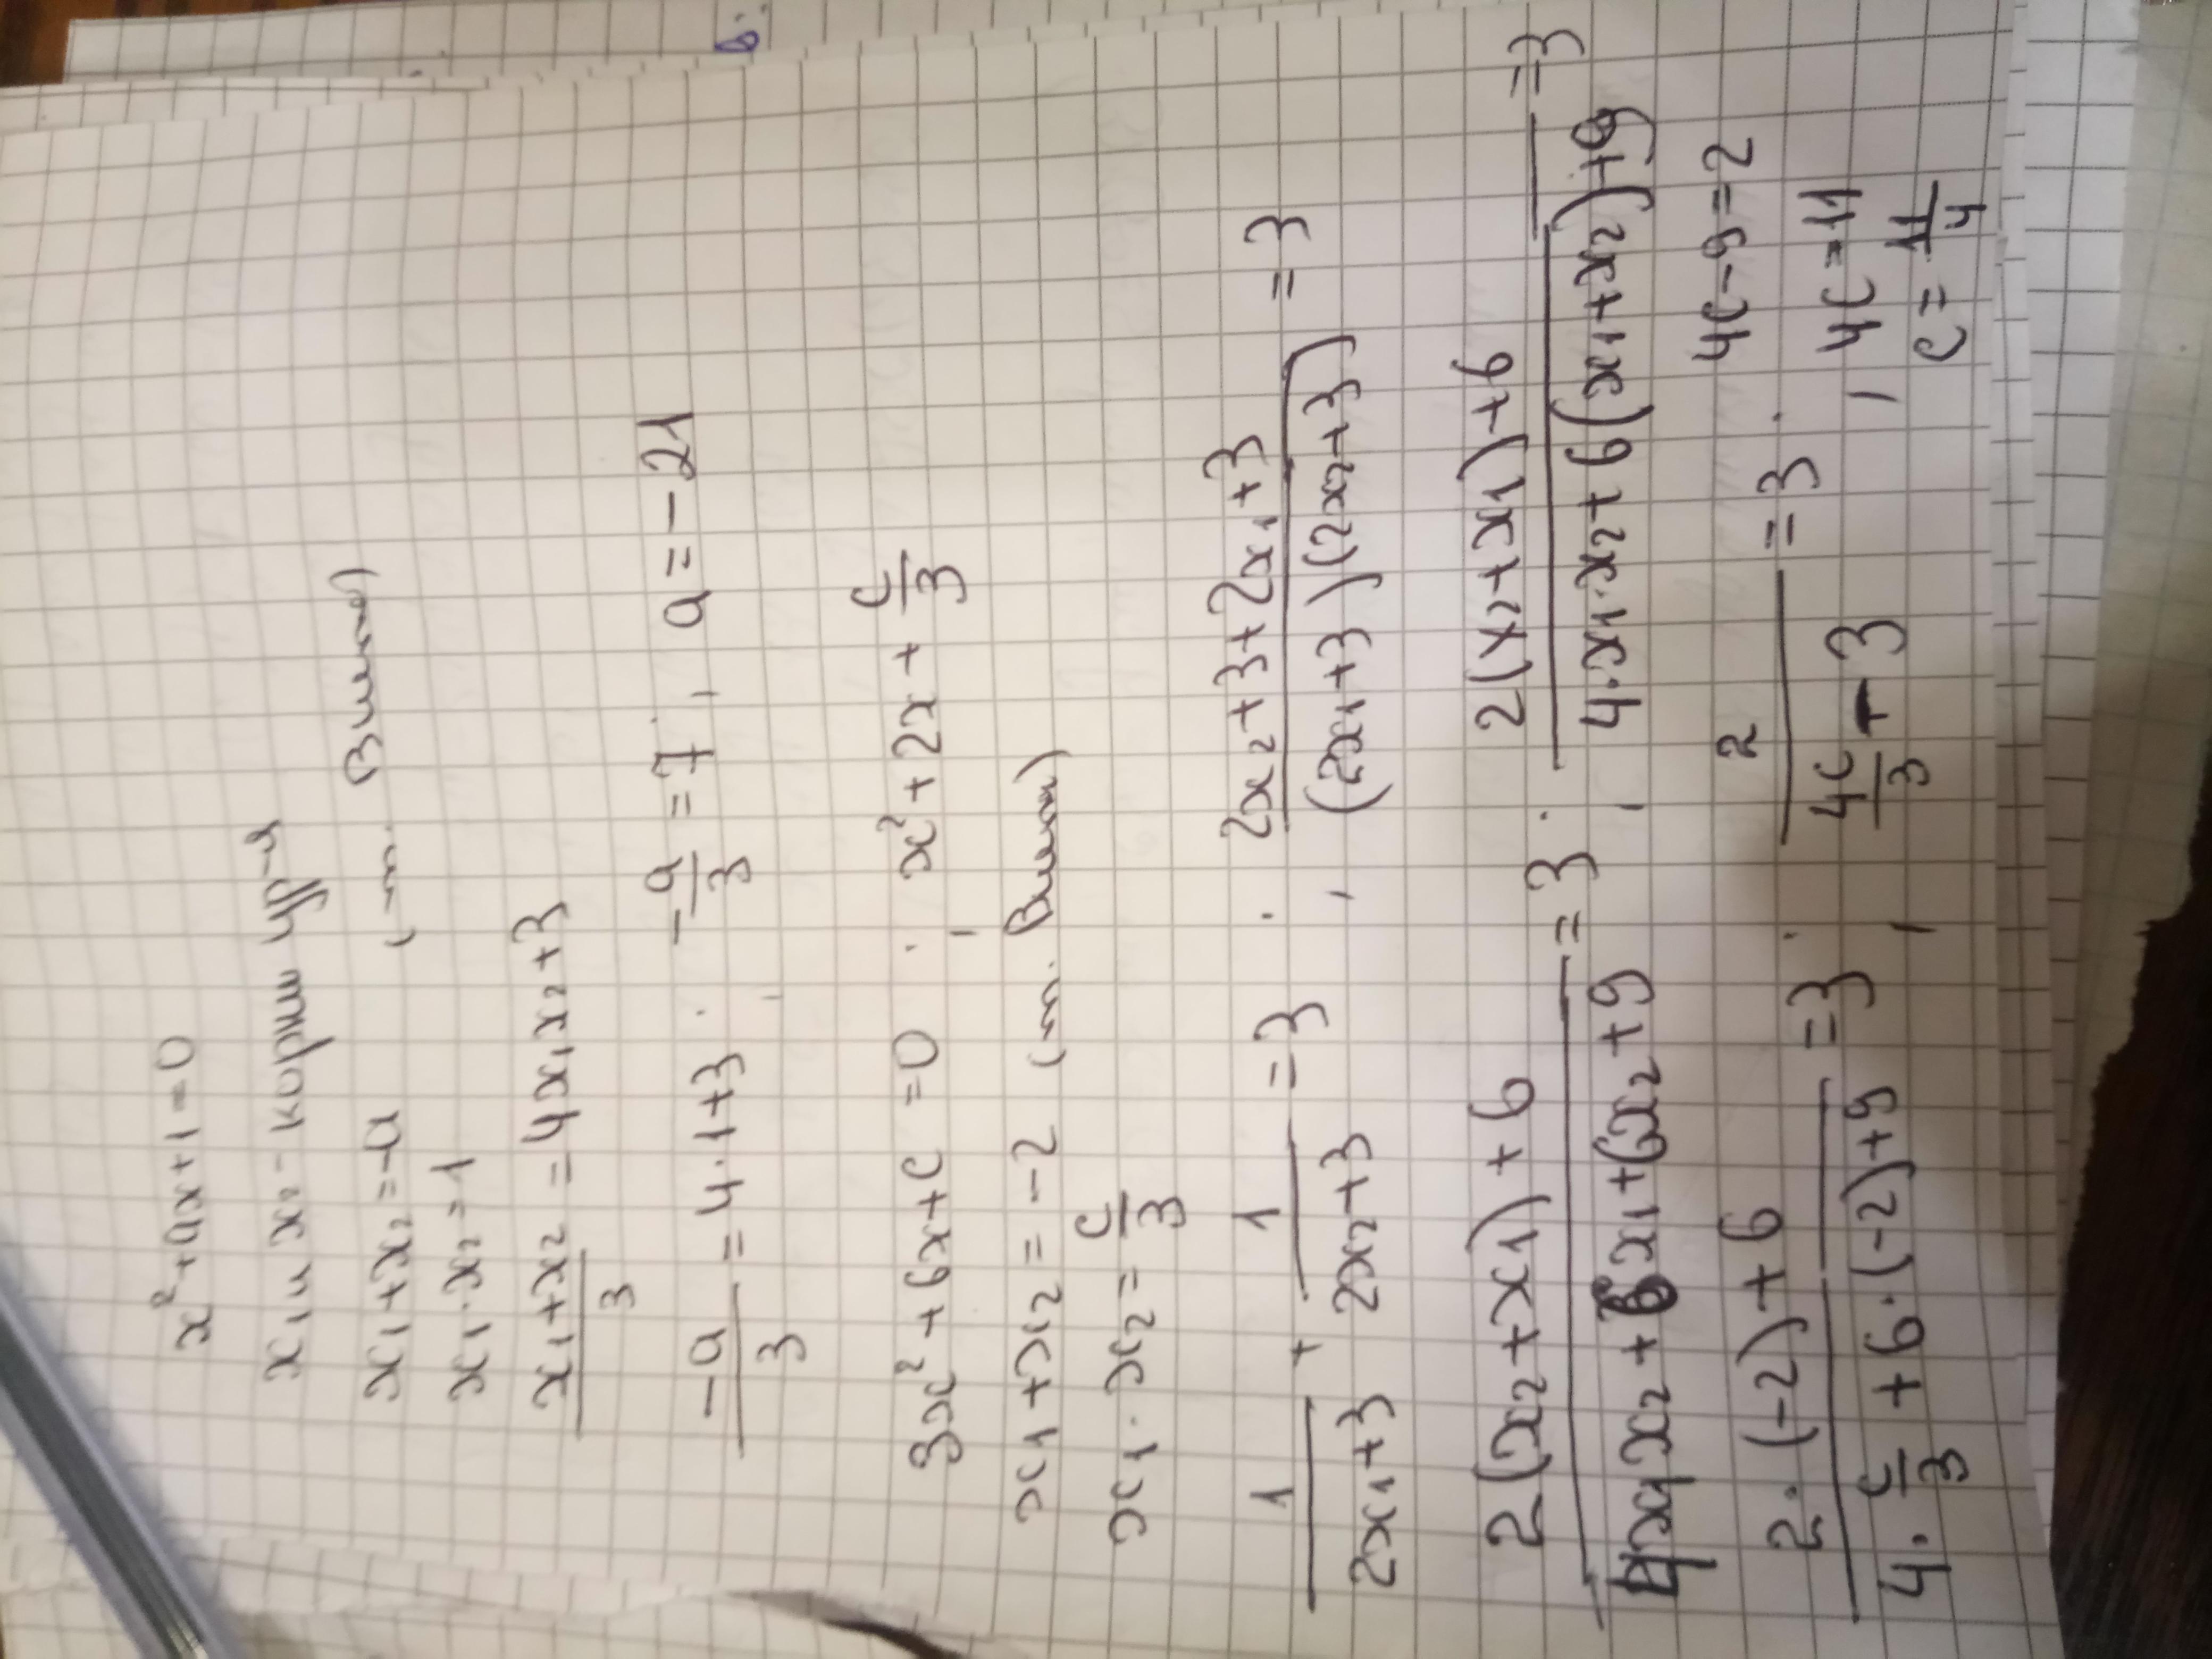 x² + ax + 1 = 0
x₁ и x₂ - корни ур-я
x₁ + x₂ = -a (т. Виета)
x₁ · x₂ = 1
(x₁ + x₂)/3 = 4x₁x₂ + 3
-a/3 = 4·1+3; -a/3 = 7, a = -21
3x² + 6x + c = 0; x² + 2x + c/3
x₁ + x₂ = -2 (т. Виета)
x₁ · x₂ = c/3
1/(2x₁+3) + 1/(2x₂+3) = 3; (2x₂+3+2x₁+3)/((2x₁+3)(2x₂+3)) = 3
(2(x₂+x₁)+6)/(4x₁x₂+6x₁+6x₂+9) = 3; (2(x₂+x₁)+6)/(4·x₁·x₂+6(x₁+x₂)+9) = 3
(2·(-2)+6)/(4·c/3+6·(-2)+9) = 3; 2/(4c/3 - 3) = 3; 4c-9=2
4c = 11
c = 11/4
в.